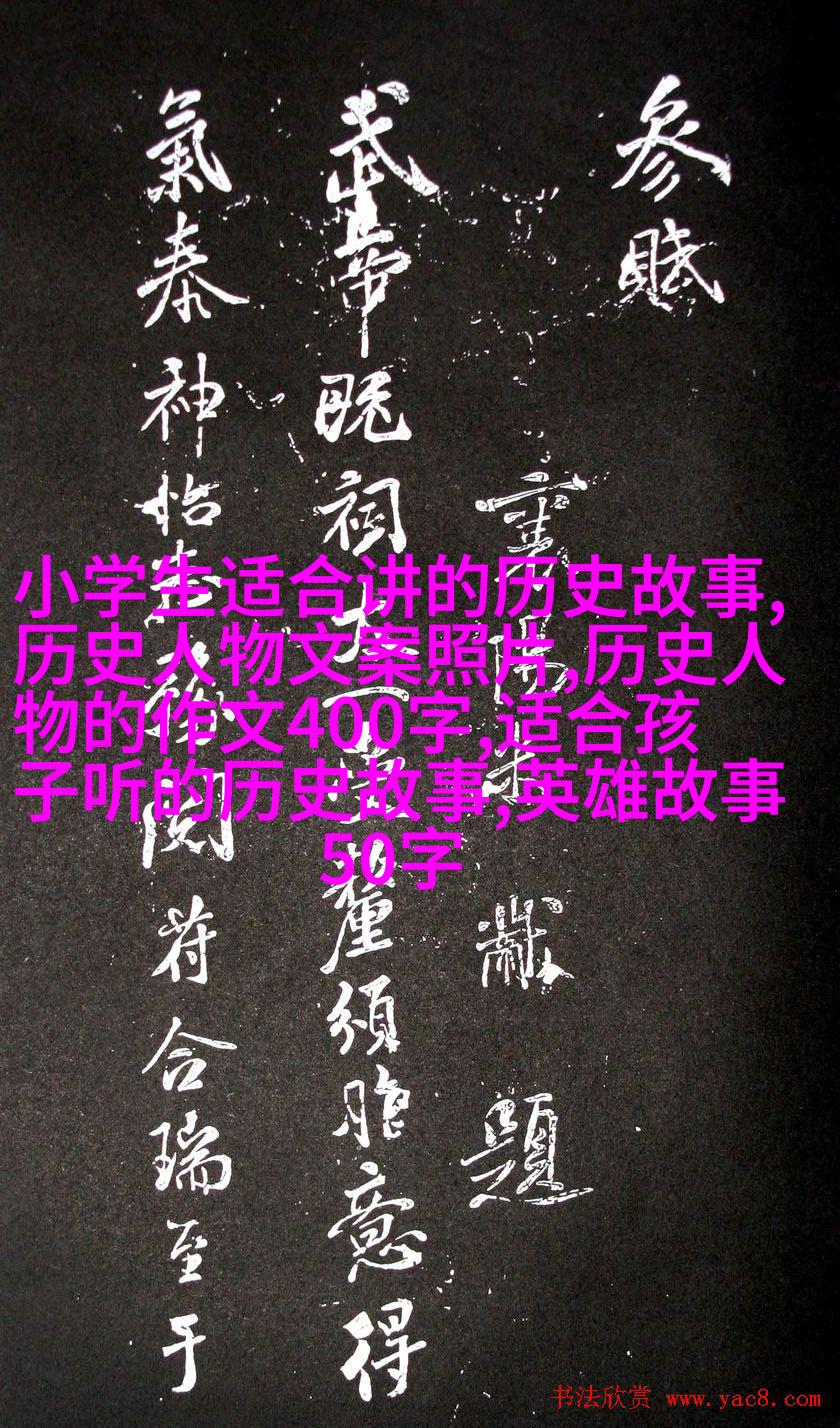 參賦
重陽 獻題
武帝既祠太一 釐頒胙意得
氣泰神怡 閱符合瑞至于
小学生适合讲的历史故事,
历史人物文案照片,历史人
物的作文400字,适合孩
子听的历史故事,英雄故事
50字
书法欣赏 www.yac8.com